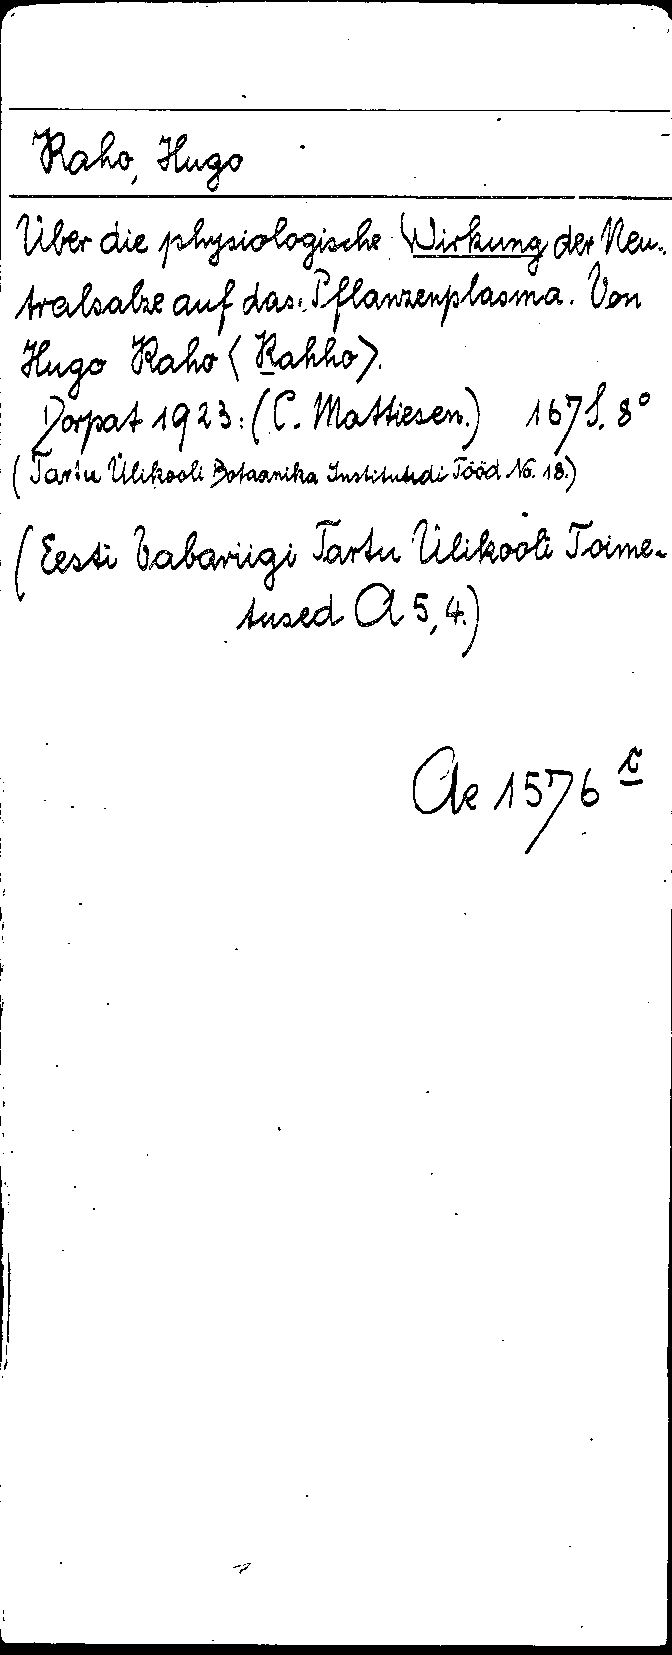 Kaho, Hugo
Über die physiologische Wirkung der Neu-
tralsalze auf das Pflanzenplasma. Von
Hugo Kaho <Kahho>.
Dorpat 1923: (C. Mattiesen.) 167 S. 8°
(Tartu Ülikooli Botaanika Instituudi Tööd No. 18.)
(Eesti Vabariigi Tartu Ülikooli Toime-
tused A 5, 4.)
Ae 1576